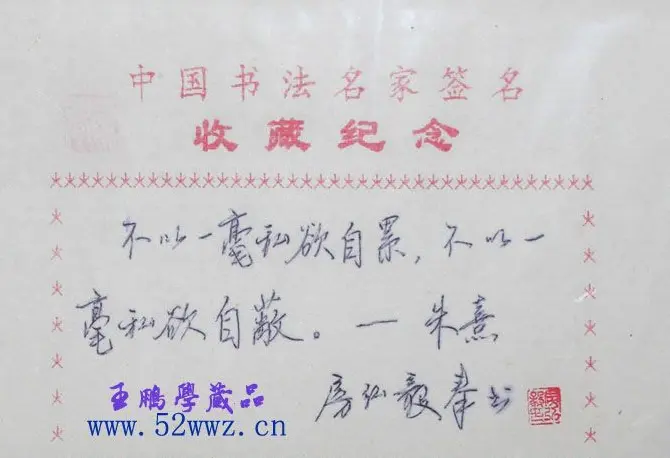 中国书法名家签名
收藏纪念
不以一毫私欲自累，不以一
毫私欲自蔽。一朱熹
房弘毅奉书
王鹏學藏品
www.52wwz.cn